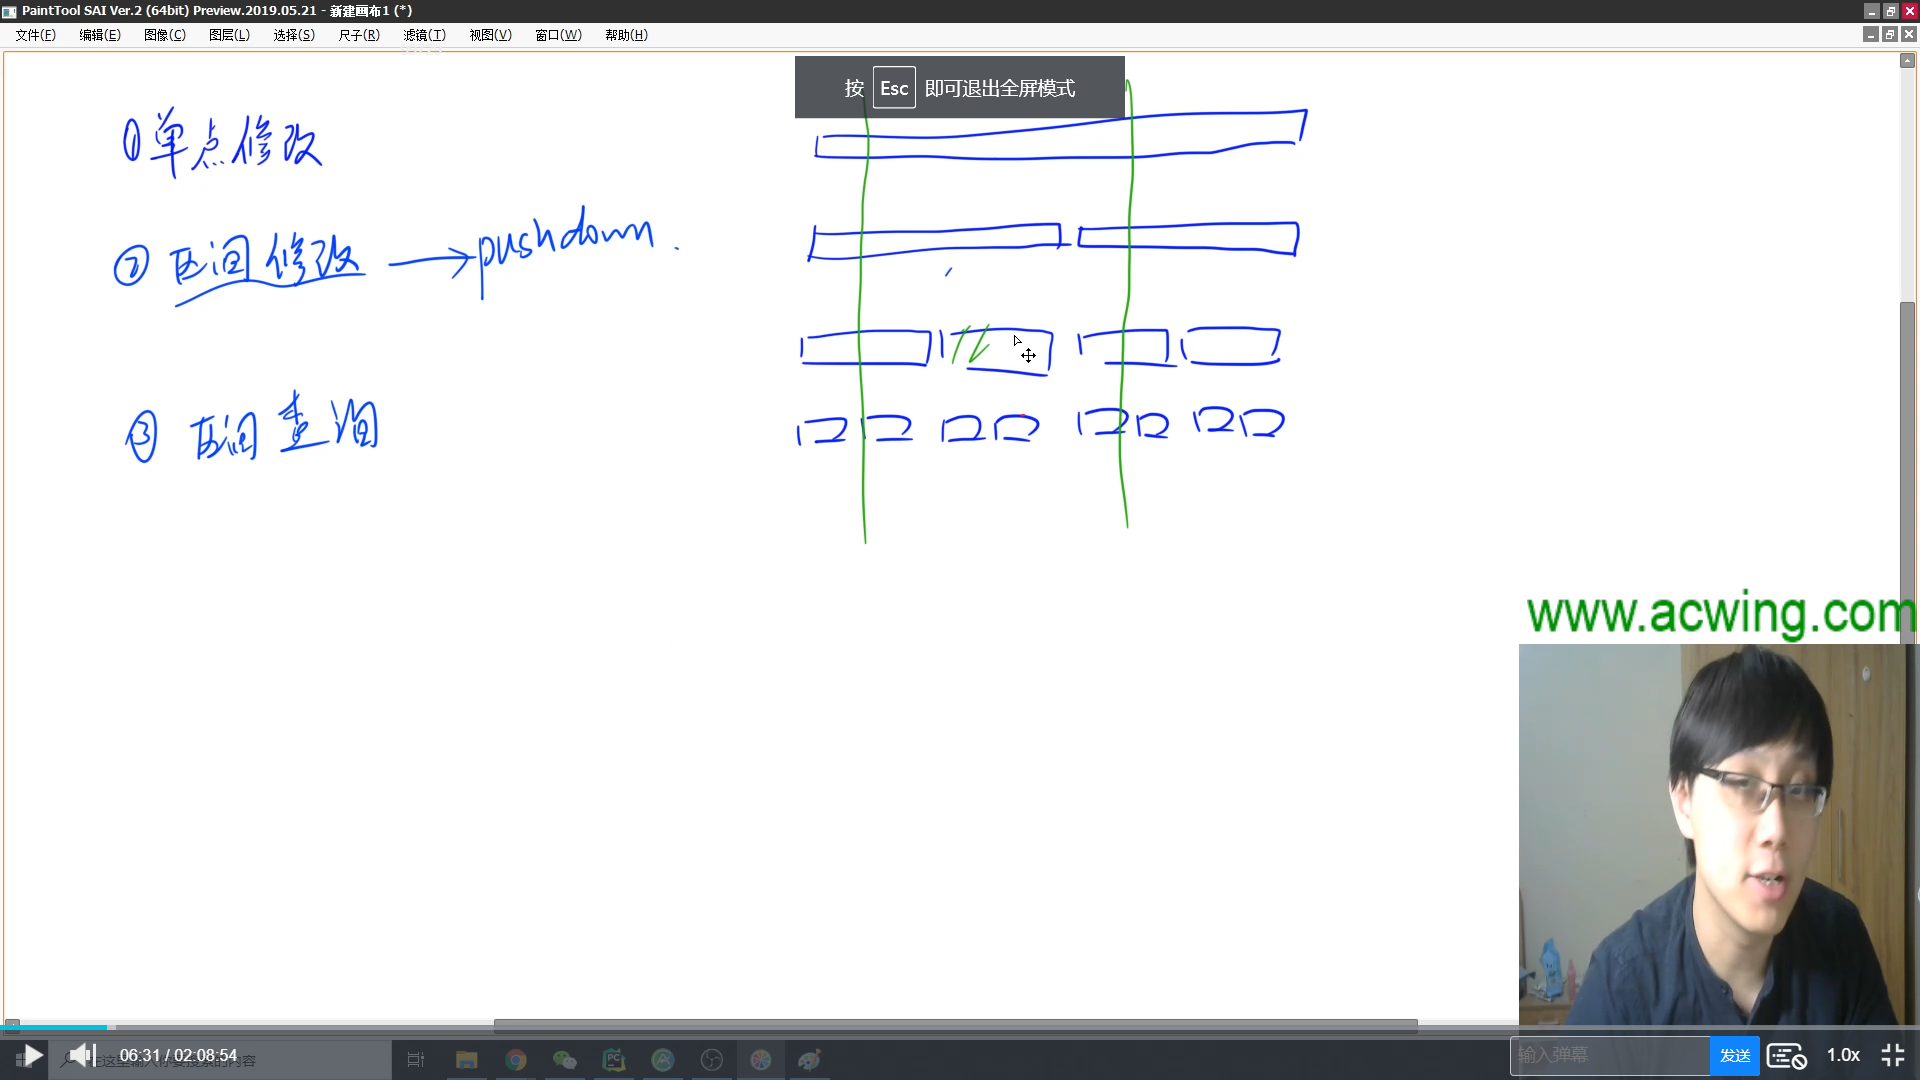 PaintTool SAI Ver.2 (64bit) Preview.2019.05.21 - 新建画布1 (*)
文件(F) 编辑(E) 图像(C) 图层(L) 选择(S) 尺子(R) 滤镜(T) 视图(V) 窗口(W) 帮助(H)
按 Esc 即可退出全屏模式
①单点修改
②区间修改 → pushdown.
③区间查询
www.acwing.com
06:31 / 02:08:54
在这里输入你要搜索的内容
输入弹幕
发送
1.0x